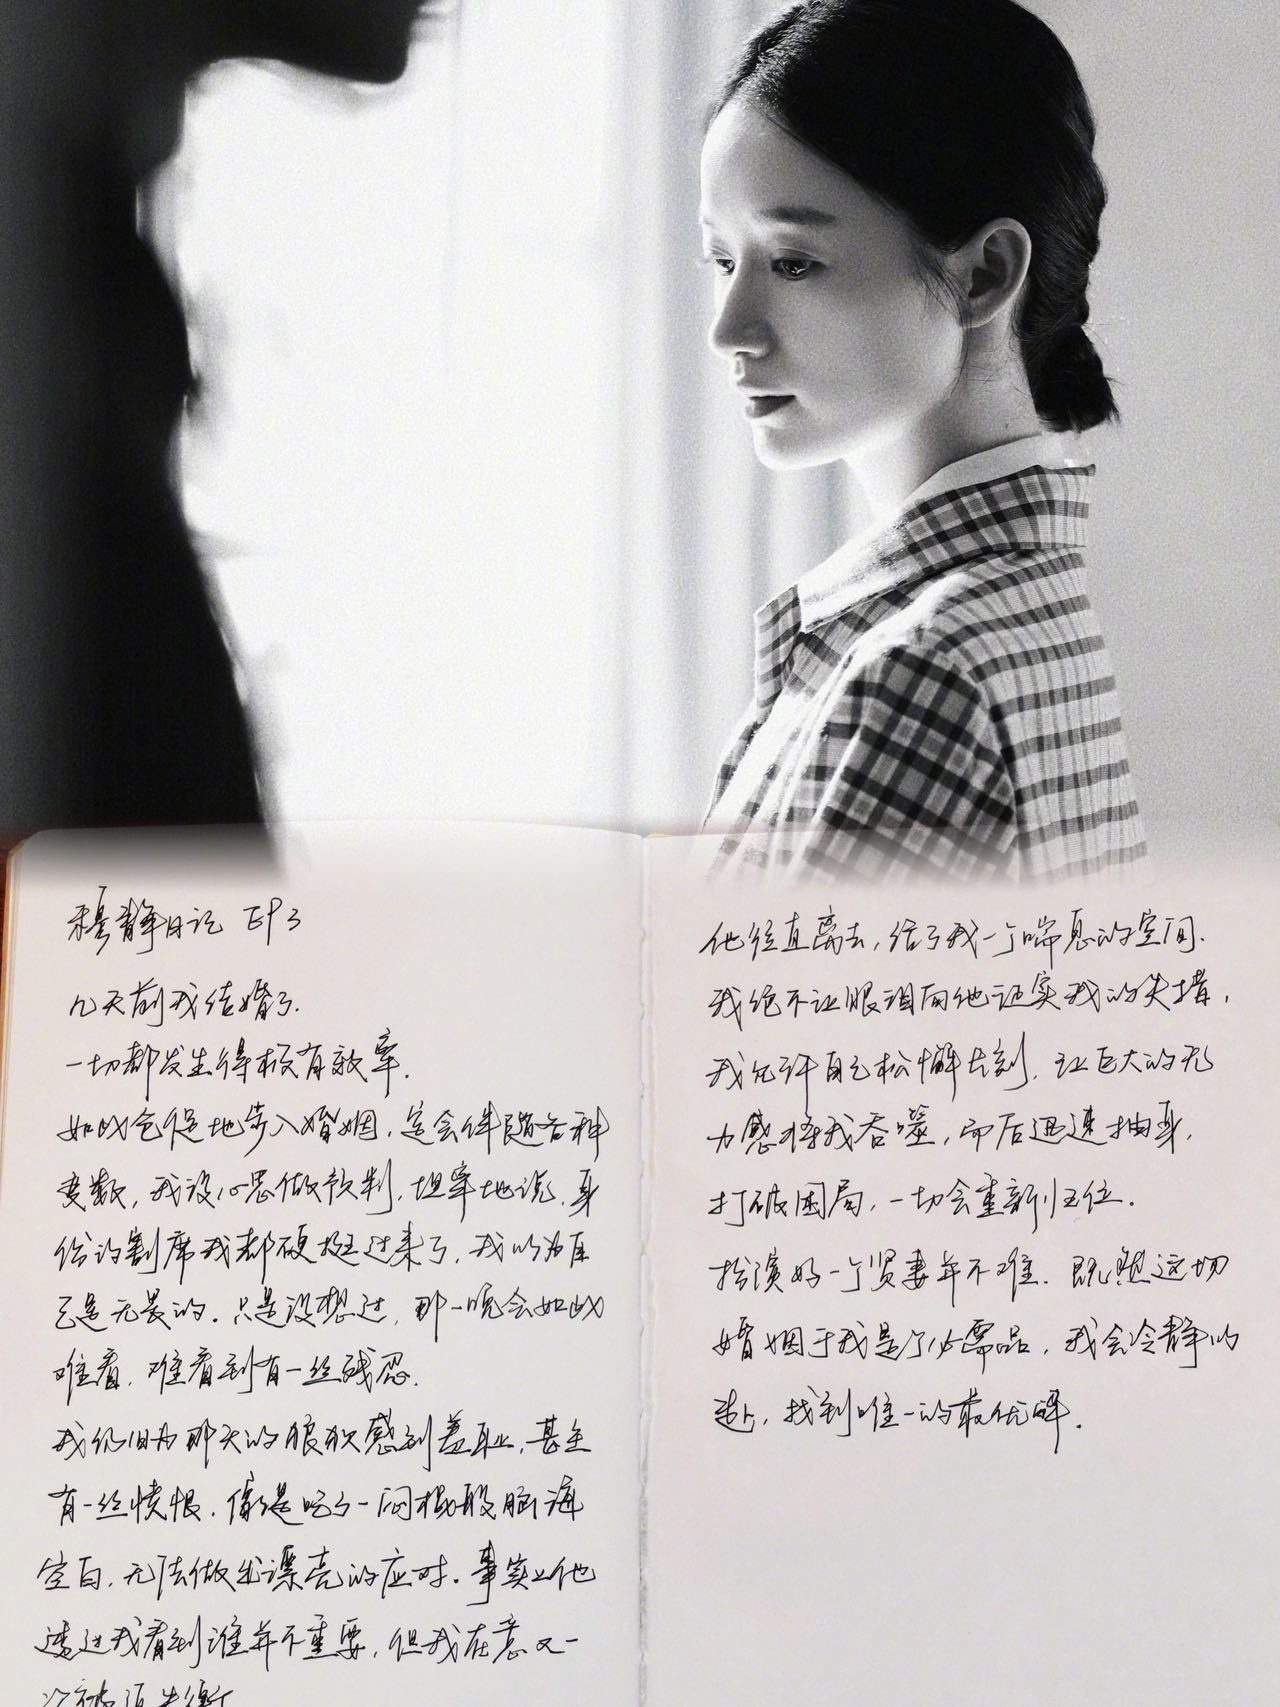 穆静日记 EP3
几天前我结婚了.
一切都发生得极有效率.
如此仓促地步入婚姻,定会伴随各种
变数,我没心思做预判.坦率地说,身
份的割席我都硬挺过来了,我以为自
己是无畏的.只是没想过,那一晚会如此
难看,难看到有一丝残忍.
我仍旧为那天的狼狈感到羞耻,甚至
有一丝愤恨.像是吃了一闷棍般脑海
空白,无法做出漂亮的应对.事实上他
透过我看到谁并不重要,但我在意又一
他径直离去,给了我一个喘息的空间.
我绝不让眼泪向他证实我的失措,
我允许自己松懈片刻.让巨大的无
力感将我吞噬,而后迅速抽身.
打破困局,一切会重新归位.
扮演好一个贤妻并不难.既然这切
婚姻于我是个必需品,我会冷静的
,找到唯一的最优解.